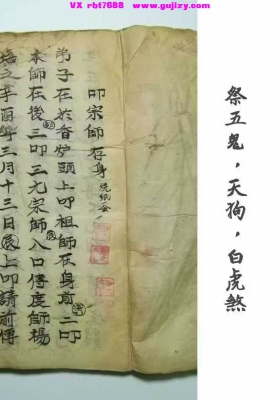 VX rbt7688 www.gujizy.com
祭五鬼，天狗，白虎煞
叩宗師存身 先紙会
弟子在於香炉頭上叩祖師在身前 二叩
本師在後 三叩三元宗師入口傳度師場
年三月十三日 上叩請前傳